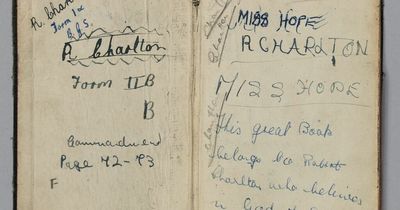 R. Char
Form 1x
R. Charlton
Form IIB
B
Commandment
Page 72-73
F
MISS HOPE
R CHARLTON
MISS HOPE
This great Book
belongs to Robert
Charlton who believes
in God